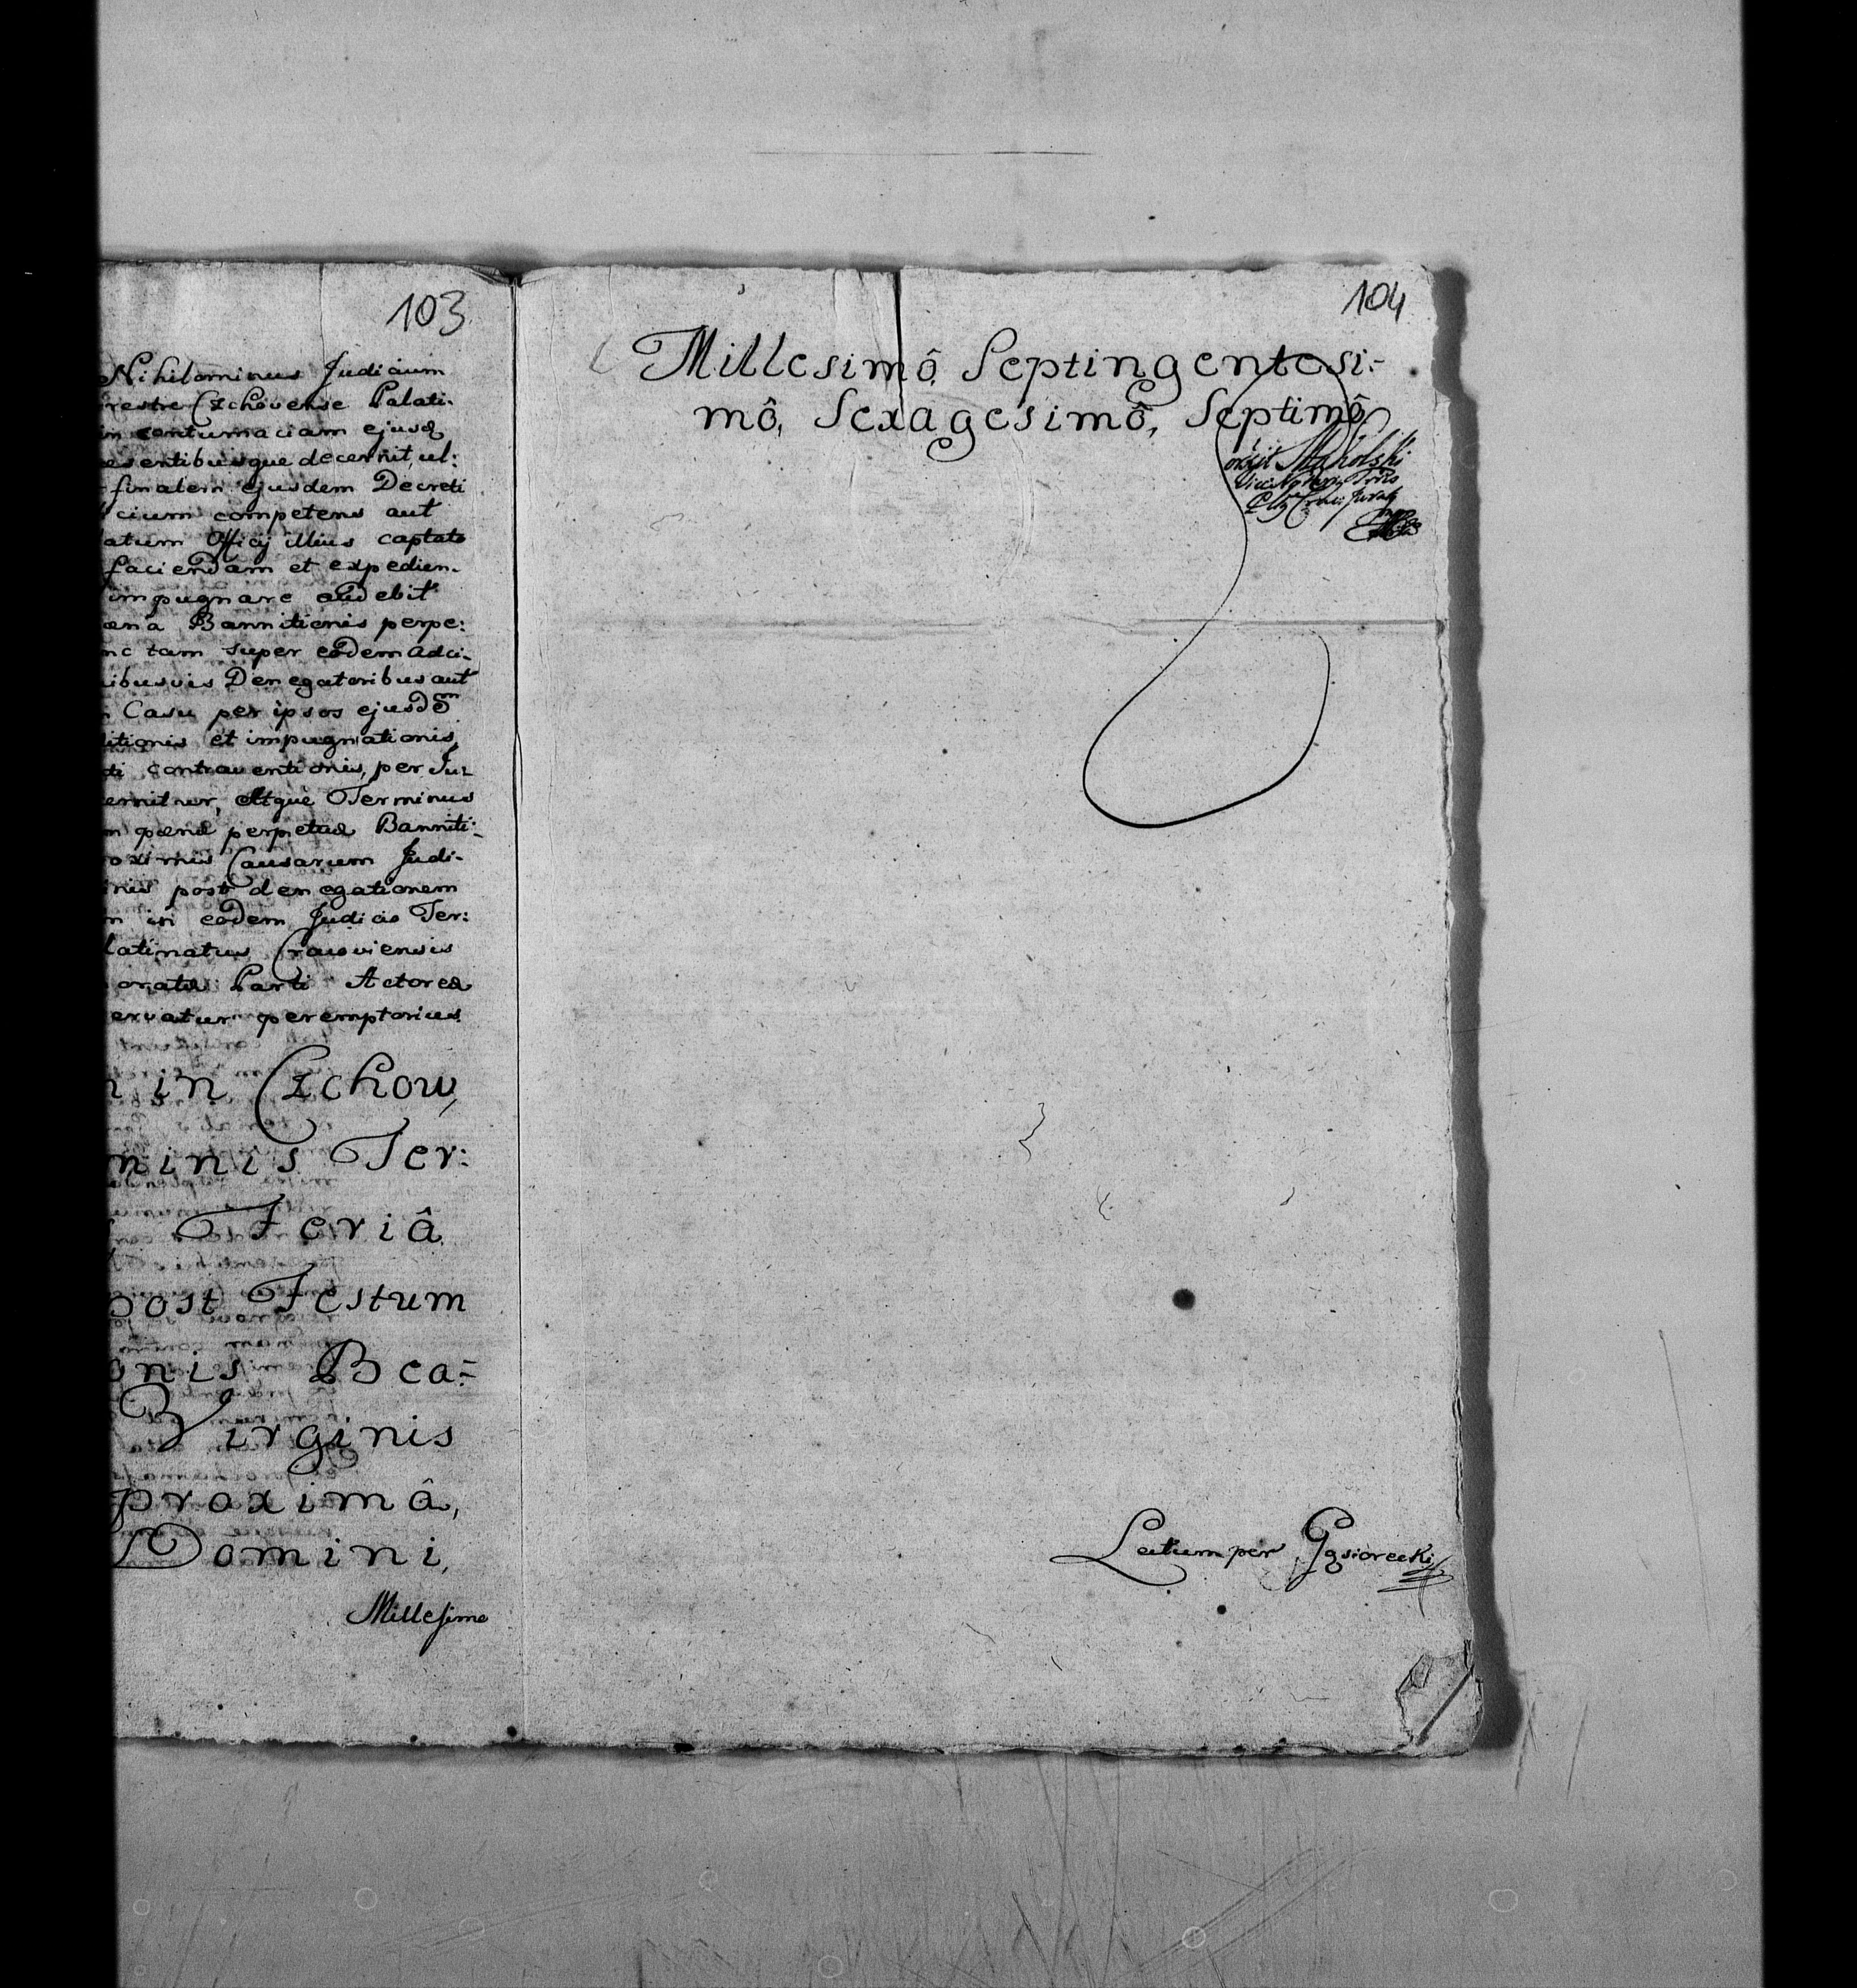 103
Nihilominus Judicium
restre Czchoviense Palati-
in contumaciam ejusd
esentibusque decernit, ul:
finalem ejusdem Decreti
cium competens aut
atum Officij illius captato
faciendam et expedien-
impugnare audebit
æna Bannitionis perpe:
nc tam super eodem adci-
ibusvis Denegatoribus aut
Casu per ipsos ejusdem
itionis et impugnationis,
ti contraventionis, per Ju-
ernitur, Atque Terminus
n pæna perpetuæ Banniti-
oximis Causarum Judi-
nis post denegationem
n in eodem Judicio Ter:
latinatus Cracoviensis
oratæ Parti Actoreæ
ervatur peremptorius
in Czchow,
minis Ter:
Feriâ
post Festum
onis Bea-
Virginis
proximâ,
Domini,
Millesimo
104
Millesimô Septingentesi-
mô, Sexagesimô, Septimô
Lectum per Gąsiorecki